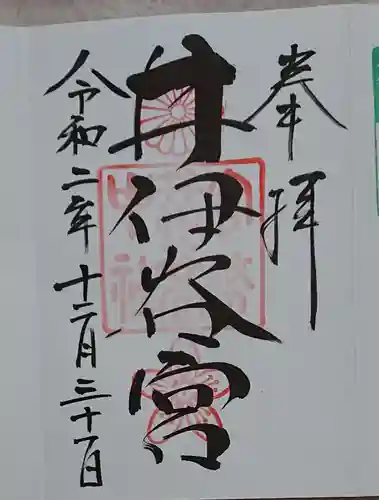 奉拝
井伊谷宮
令和二年十二月三十一日